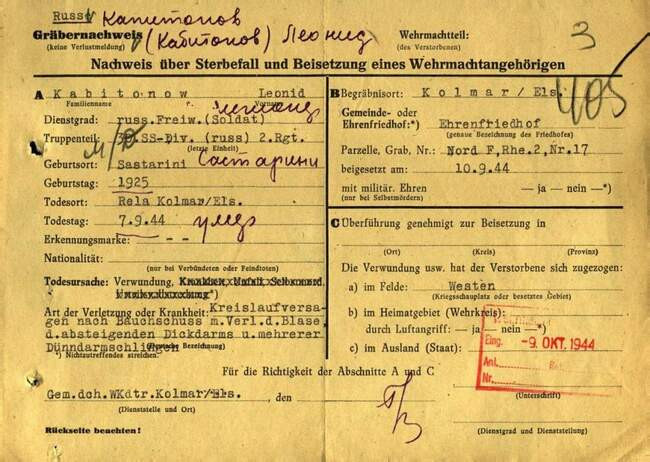 Russ. Капитонов
Gräbernachweis (Кабитонов) Леонид Wehrmachtteil: 3
(keine Verlustmeldung) (des Verstorbenen)
Nachweis über Sterbefall und Beisetzung eines Wehrmachtangehörigen
A Kabitonow Leonid
Familienname Vorname
Dienstgrad: russ.Freiw.(Soldat)
Truppenteil: 30.SS-Div.(russ) 2.Rgt.
(letzte Einheit)
Geburtsort: Sastarini Састарини
Geburtstag: 1925
Todesort: Rela Kolmar/Els.
Todestag: 7.9.44
Erkennungsmarke: - -
Nationalität:
(nur bei Verbündeten oder Feindtoten)
Todesursache: Verwundung, Krankheit, Unfall, Selbstmord,
*)
Art der Verletzung oder Krankheit: Kreislaufversa-
gen nach Bauchschuss m.Verl.d.Blase,
d.absteigenden Dickdarms u.mehrerer
Dünndarmschlingen (Deutsche Bezeichnung)
*) Nichtzutreffendes streichen.
B Begräbnisort: Kolmar/Els. 405
Gemeinde- oder
Ehrenfriedhof:*) Ehrenfriedhof
(genaue Bezeichnung des Friedhofes)
Parzelle, Grab. Nr.: Nord F,Rhe.2,Nr.17
beigesetzt am: 10.9.44
mit militär. Ehren — ja — nein —*)
(nur bei Selbstmördern)
C Überführung genehmigt zur Beisetzung in
(Ort) (Kreis) (Provinz)
Die Verwundung usw. hat der Verstorbene sich zugezogen:
a) im Felde: Westen
(Kriegsschauplatz oder besetztes Gebiet)
b) im Heimatgebiet (Wehrkreis):
durch Luftangriff: — ja — nein —*)
c) im Ausland (Staat):
Eing. -9. OKT. 1944
Anl.
Nr.
Für die Richtigkeit der Abschnitte A und C
Gem.dch.WKdtr.Kolmar/Els. den
(Dienststelle und Ort) (Unterschrift)
(Dienstgrad und Dienststellung)
Rückseite beachten!